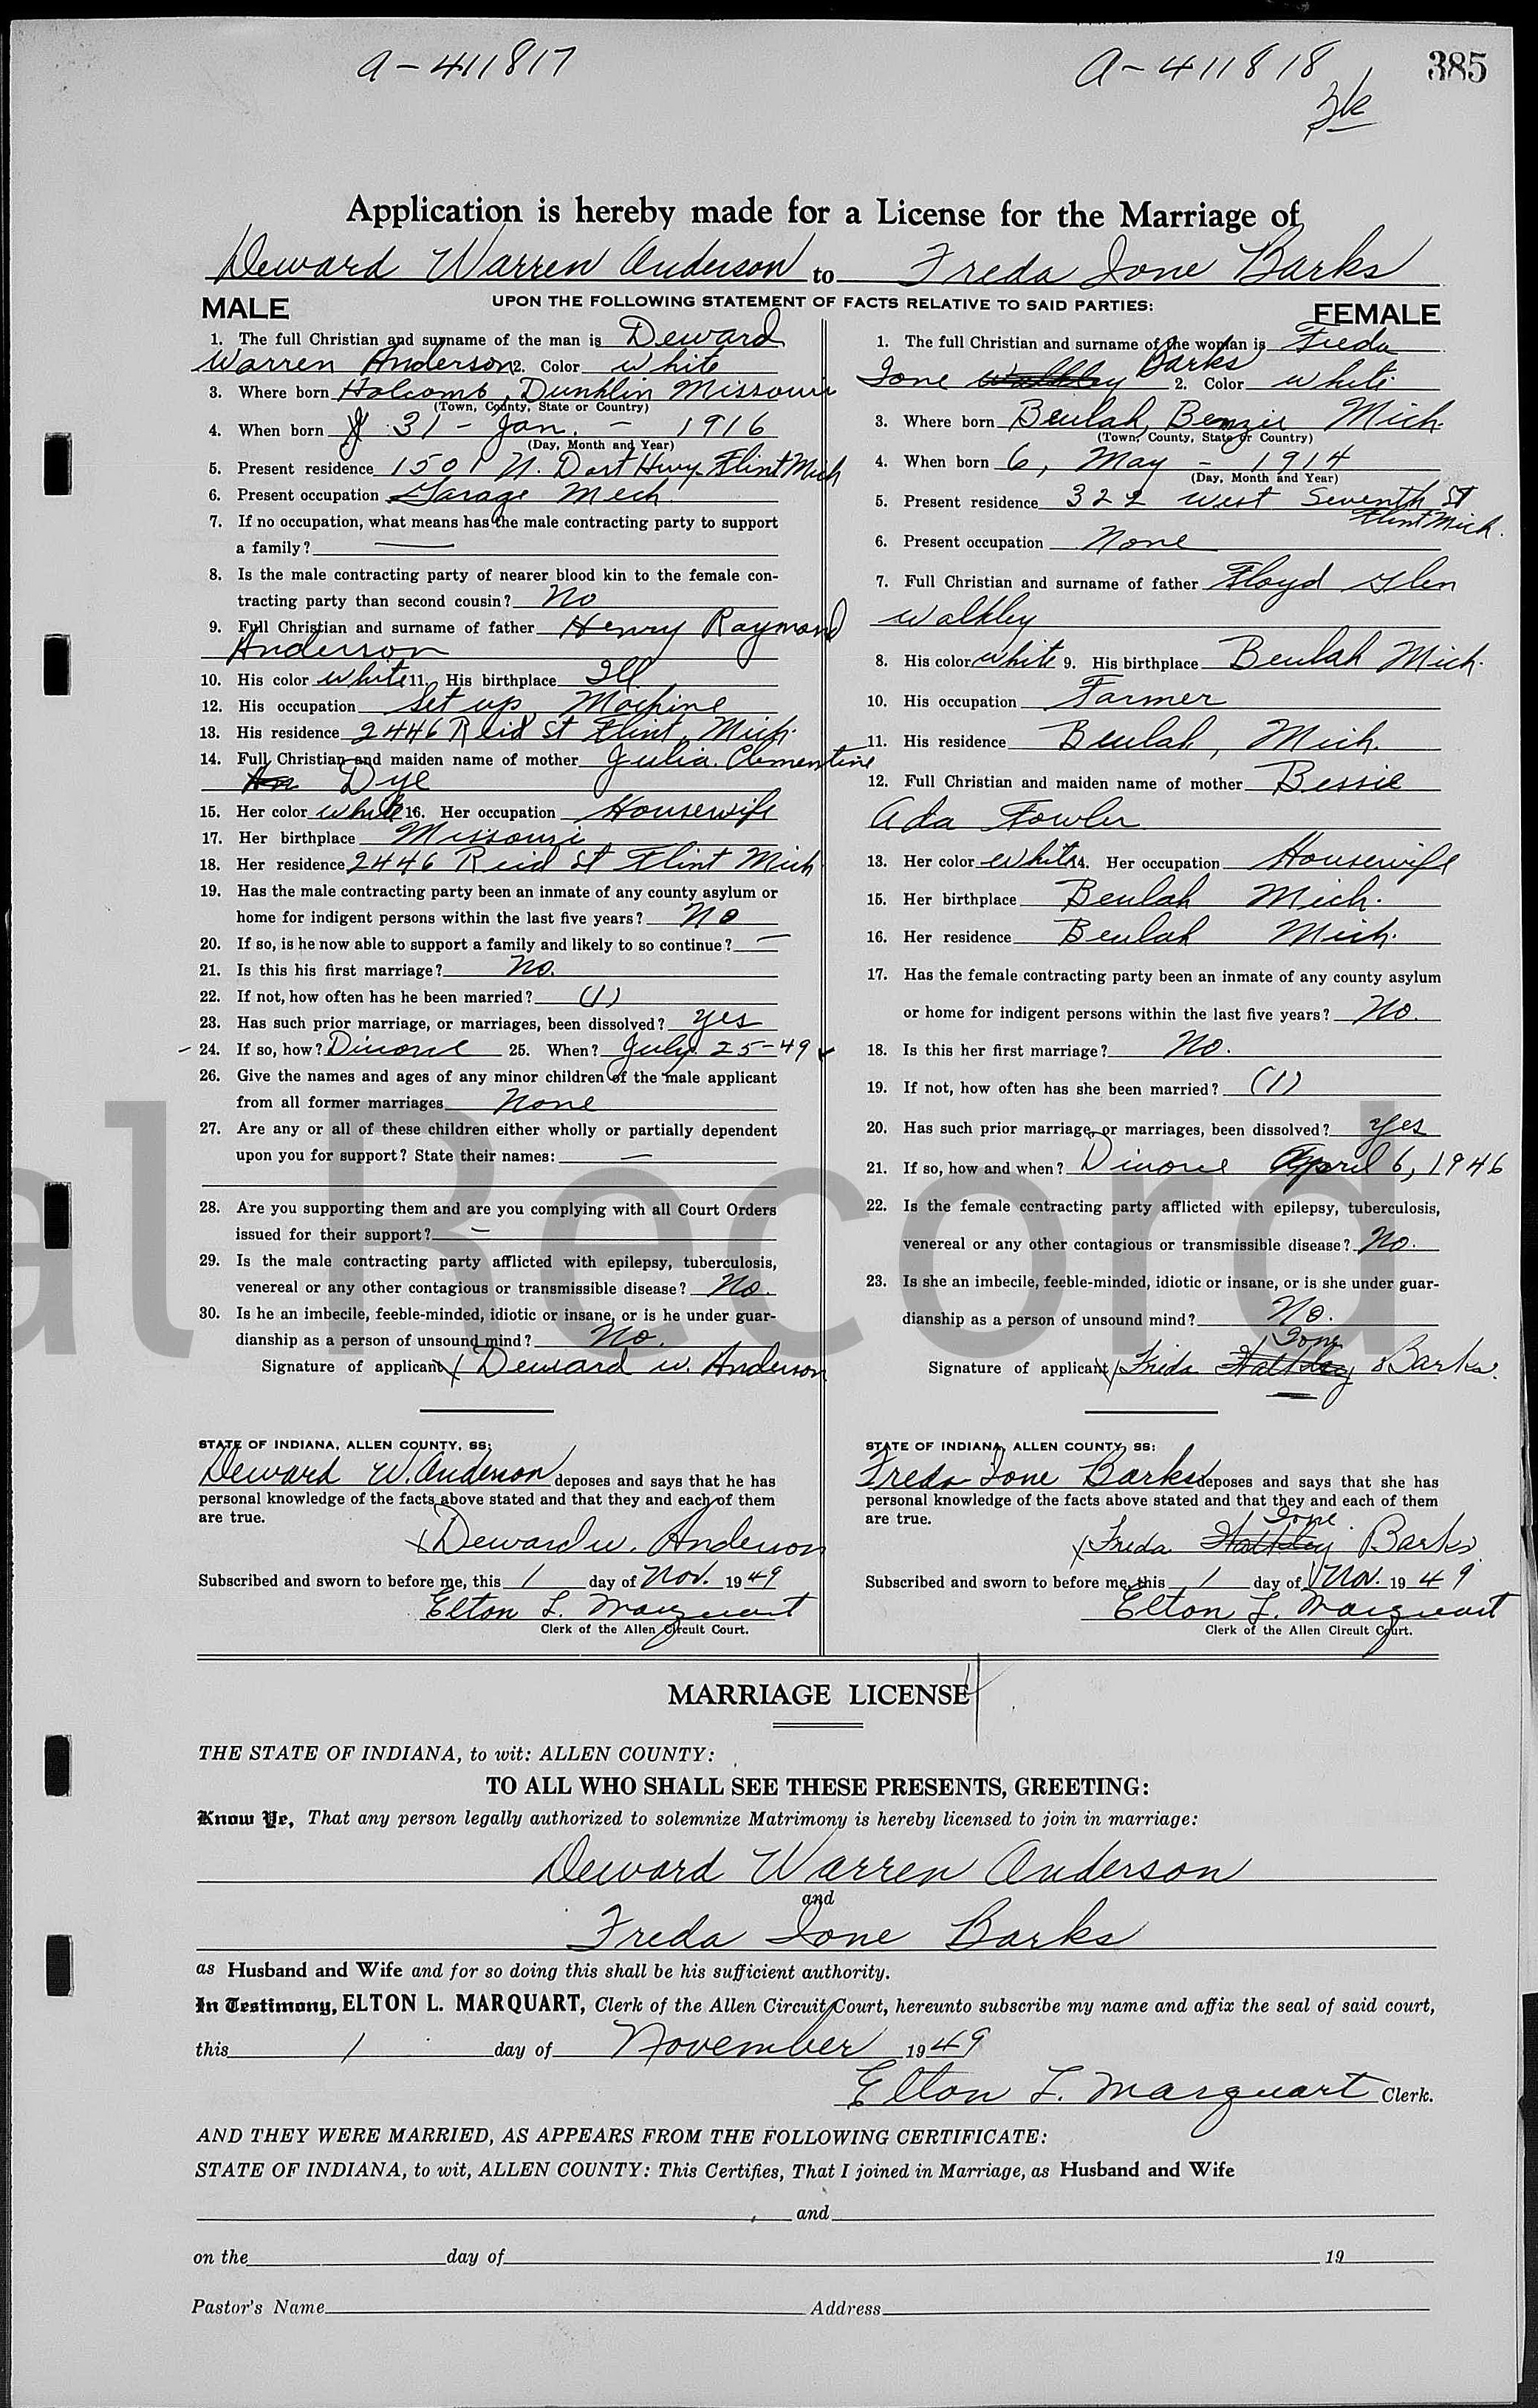 a-411817
a-411818
385
Application is hereby made for a License for the Marriage of
Deward Warren Anderson to Freda Ione Barks
UPON THE FOLLOWING STATEMENT OF FACTS RELATIVE TO SAID PARTIES:
MALE
1. The full Christian and surname of the man is Deward
Warren Anderson 2. Color white
3. Where born Holcomb, Dunklin Missouri
(Town, County, State or Country)
4. When born 31 - Jan. - 1916
(Day, Month and Year)
5. Present residence 1501 N. Dort Hwy Flint Mich
6. Present occupation Garage Mech
7. If no occupation, what means has the male contracting party to support
a family? —
8. Is the male contracting party of nearer blood kin to the female con-
tracting party than second cousin? No
9. Full Christian and surname of father Henry Raymond
Anderson
10. His color white 11. His birthplace Ill
12. His occupation Set up Machine
13. His residence 2446 Reid St Flint, Mich.
14. Full Christian and maiden name of mother Julia Clementine
Dye
15. Her color white 16. Her occupation Housewife
17. Her birthplace Missouri
18. Her residence 2446 Reid St Flint Mich
19. Has the male contracting party been an inmate of any county asylum or
home for indigent persons within the last five years? No
20. If so, is he now able to support a family and likely to so continue? —
21. Is this his first marriage? No.
22. If not, how often has he been married? (1)
23. Has such prior marriage, or marriages, been dissolved? yes
- 24. If so, how? Divorce 25. When? July 25-49
26. Give the names and ages of any minor children of the male applicant
from all former marriages None
27. Are any or all of these children either wholly or partially dependent
upon you for support? State their names: —
28. Are you supporting them and are you complying with all Court Orders
issued for their support? —
29. Is the male contracting party afflicted with epilepsy, tuberculosis,
venereal or any other contagious or transmissible disease? No.
30. Is he an imbecile, feeble-minded, idiotic or insane, or is he under guar-
dianship as a person of unsound mind? No.
Signature of applicant x Deward w. Anderson
STATE OF INDIANA, ALLEN COUNTY, SS:
Deward W. Anderson deposes and says that he has
personal knowledge of the facts above stated and that they and each of them
are true.
x Deward w. Anderson
Subscribed and sworn to before me, this 1 day of Nov. 1949
Elton L. Marquart
Clerk of the Allen Circuit Court.
FEMALE
1. The full Christian and surname of the woman is Freda
Ione Walkley Barks 2. Color white
3. Where born Beulah, Benzie Mich.
(Town, County, State or Country)
4. When born 6, May - 1914
(Day, Month and Year)
5. Present residence 322 West Seventh St
Flint Mich.
6. Present occupation None
7. Full Christian and surname of father Floyd Glen
Walkley
8. His color white 9. His birthplace Beulah Mich.
10. His occupation Farmer
11. His residence Beulah, Mich.
12. Full Christian and maiden name of mother Bessie
Ada Fowler
13. Her color white 14. Her occupation Housewife
15. Her birthplace Beulah Mich.
16. Her residence Beulah Mich.
17. Has the female contracting party been an inmate of any county asylum
or home for indigent persons within the last five years? No.
18. Is this her first marriage? No.
19. If not, how often has she been married? (1)
20. Has such prior marriage, or marriages, been dissolved? yes
21. If so, how and when? Divorce April 6, 1946
22. Is the female contracting party afflicted with epilepsy, tuberculosis,
venereal or any other contagious or transmissible disease? No.
23. Is she an imbecile, feeble-minded, idiotic or insane, or is she under guar-
dianship as a person of unsound mind? No.
Signature of applicant x Freda Walkley Ione Barks.
STATE OF INDIANA, ALLEN COUNTY, SS:
Freda Ione Barks deposes and says that she has
personal knowledge of the facts above stated and that they and each of them
are true.
x Freda Walkley Ione Barks
Subscribed and sworn to before me, this 1 day of Nov. 1949
Elton L. Marquart
Clerk of the Allen Circuit Court.
al Record
MARRIAGE LICENSE
THE STATE OF INDIANA, to wit: ALLEN COUNTY:
TO ALL WHO SHALL SEE THESE PRESENTS, GREETING:
Know Ye, That any person legally authorized to solemnize Matrimony is hereby licensed to join in marriage:
Deward Warren Anderson
and
Freda Ione Barks
as Husband and Wife and for so doing this shall be his sufficient authority.
In Testimony, ELTON L. MARQUART, Clerk of the Allen Circuit Court, hereunto subscribe my name and affix the seal of said court,
this 1 day of November 1949
Elton L. Marquart Clerk.
AND THEY WERE MARRIED, AS APPEARS FROM THE FOLLOWING CERTIFICATE:
STATE OF INDIANA, to wit, ALLEN COUNTY: This Certifies, That I joined in Marriage, as Husband and Wife
and
on the day of 19
Pastor's Name Address